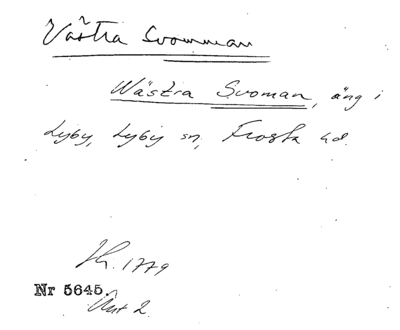 Västra Svomman
Wästra Svoman, äng i
Lyby, Lyby sn, Frosta hd.
1779
Nr 5645.
Akt 2.